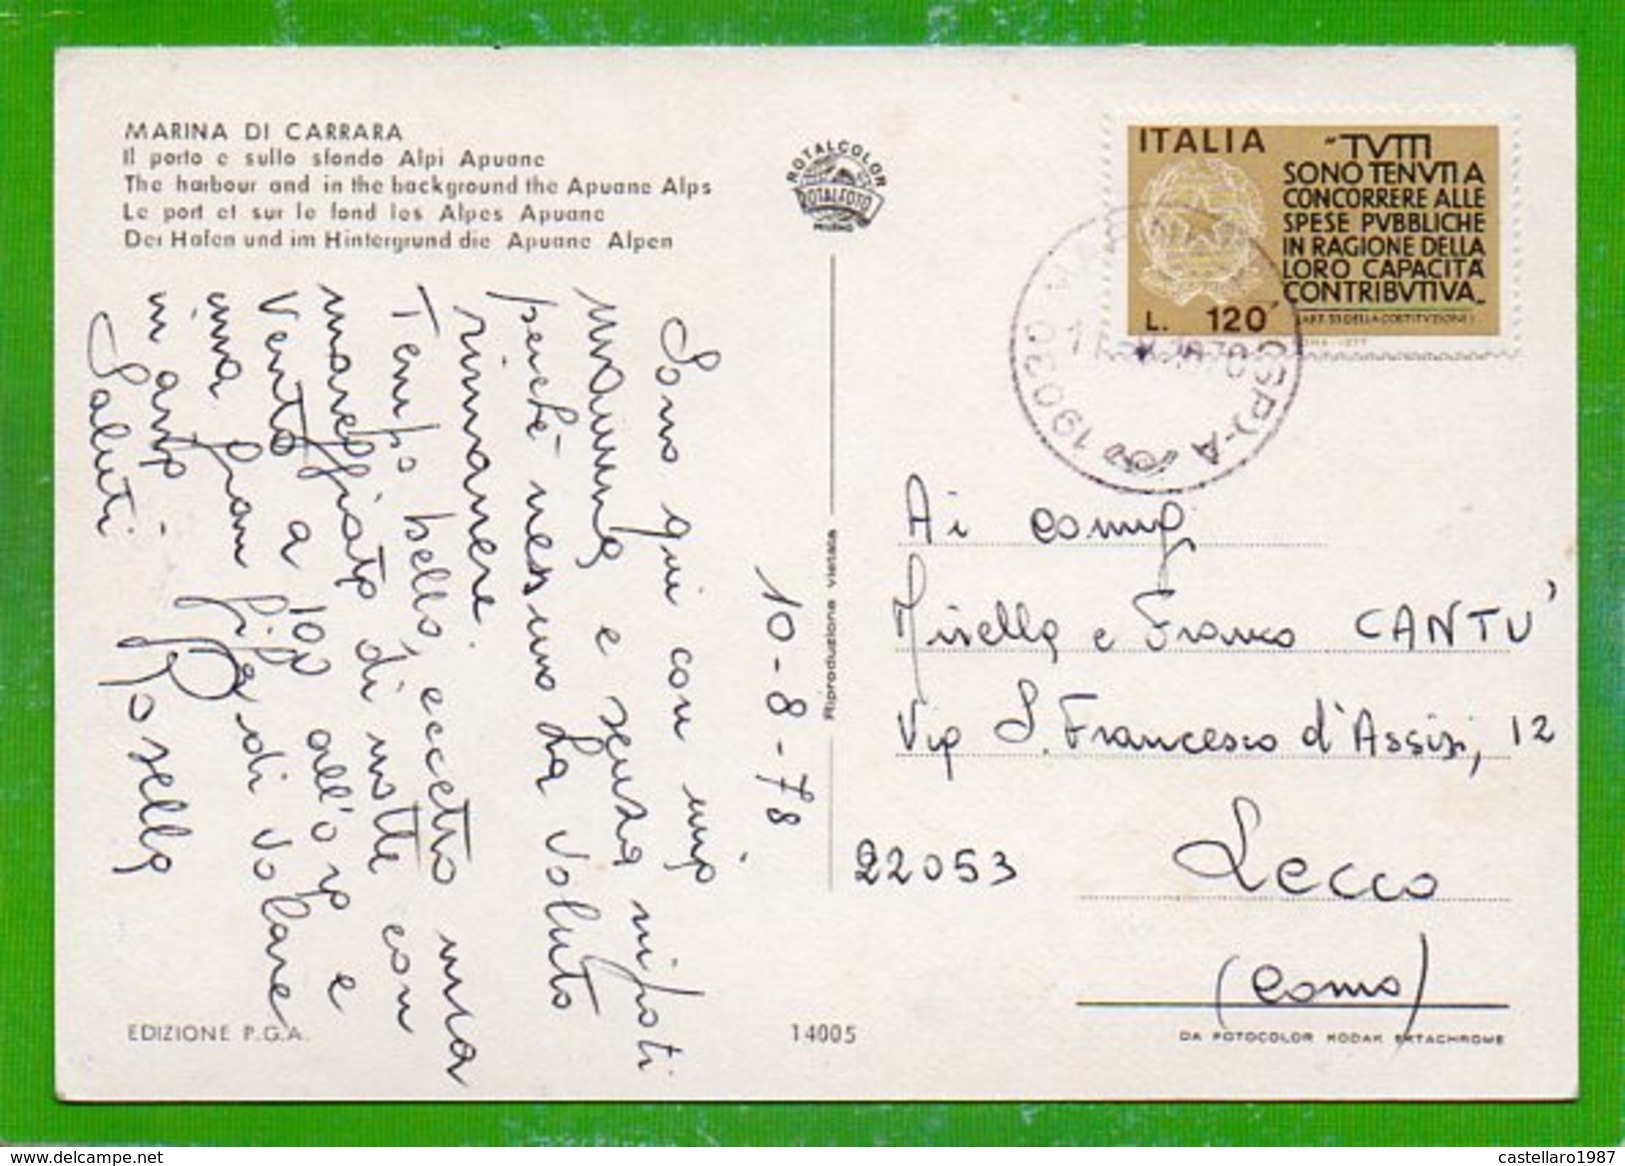 MARINA DI CARRARA
Il porto e sullo sfondo Alpi Apuane
The harbour and in the background the Apuane Alps
Le port et sur le fond les Alpes Apuane
Der Hafen und im Hintergrund die Apuane Alpen
ROTALCOLOR
ROTALFOTO
MILANO
ITALIA
"TVTTI
SONO TENVTI A
CONCORRERE ALLE
SPESE PVBBLICHE
IN RAGIONE DELLA
LORO CAPACITÀ
CONTRIBVTIVA"
(ART. 53 DELLA COSTITVZIONE)
L. 120
19030
(SP)-A
10-8-78
Sono qui con mia
mamma e senza nipoti
perchè nessuno ha voluto
rimanere.
Tempo bello, eccetto una
mareggiata di notte con
vento a 100 all'ora e
una gran fifa di volare
in aria.
Saluti
Rosella
Riproduzione vietata
Ai coniugi
Mirella e Franco CANTU'
Via S. Francesco d'Assisi, 12
22053 Lecco
(Como)
EDIZIONE P.G.A.
14005
DA FOTOCOLOR KODAK EKTACHROME
delcampe.net
castellaro1987